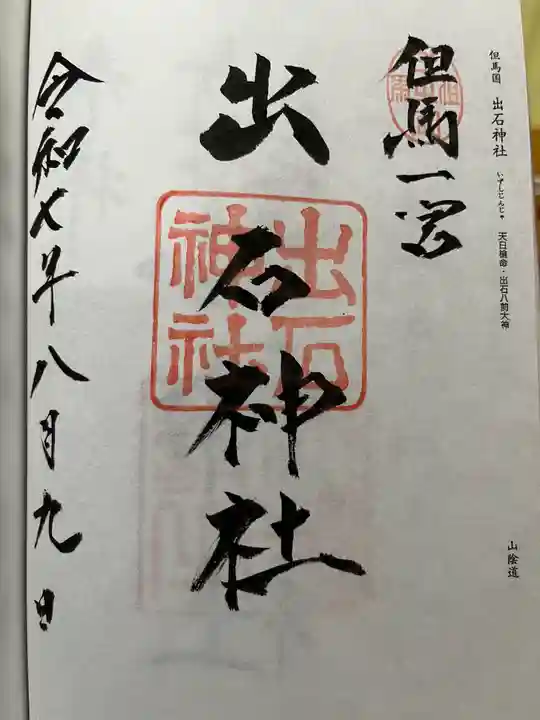 但馬国 出石神社 いずしじんじゃ 天日槍命・出石八前大神
山陰道
但馬一宮
出石神社
出石
神社
令和七年八月九日